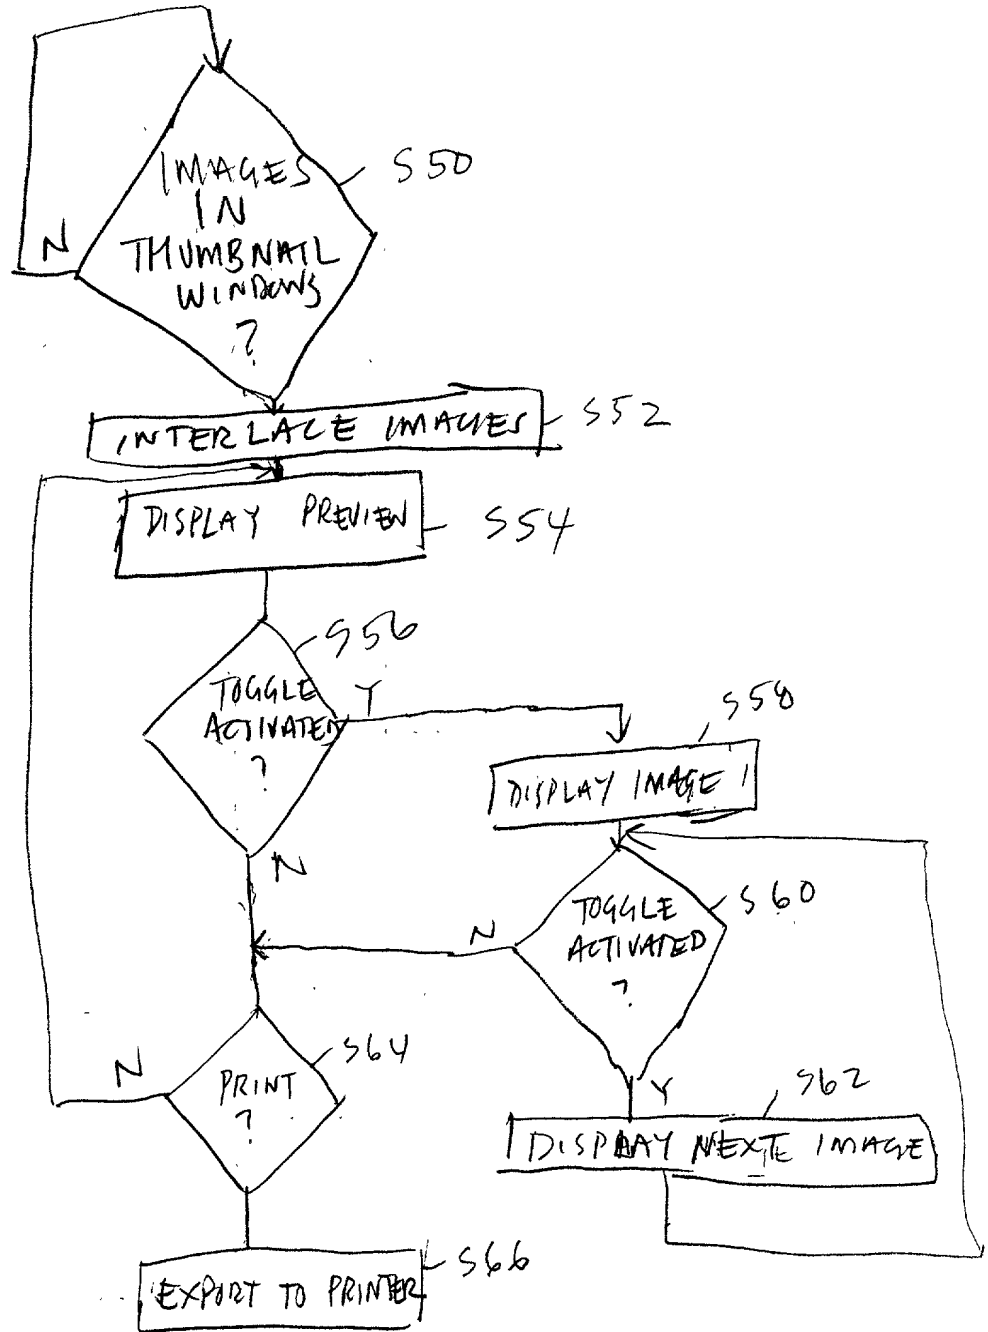 IMAGES
IN
THUMBNAIL
WINDOWS
?
S50
N
INTERLACE IMAGES
S52
DISPLAY PREVIEW
S54
S56
TOGGLE
ACTIVATED
?
Y
N
S58
DISPLAY IMAGE 1
TOGGLE
ACTIVATED
?
S60
N
Y
S62
DISPLAY NEXTE IMAGE
PRINT
?
S64
N
EXPORT TO PRINTER
S66